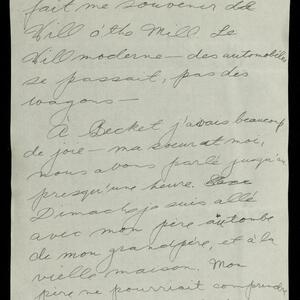 fait me souvenir de
Will o'the Mill. Le
Will moderne — des automobiles
se passait, pas des
wagons —
À Becket j'avais beaucoup
de joie — ma soeur et moi,
nous avons parlé jusqu'à
presqu'une heure.
Dimanche je suis allé
avec mon père au tombe
de mon grandpère, et à la
vielle maison. Mon
père ne pourriait comprendre